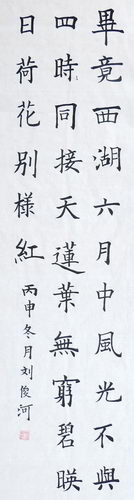 畢竟西湖六月中風光不與
四時同接天蓮葉無窮碧暎
日荷花别樣紅
丙申冬月刘俊河